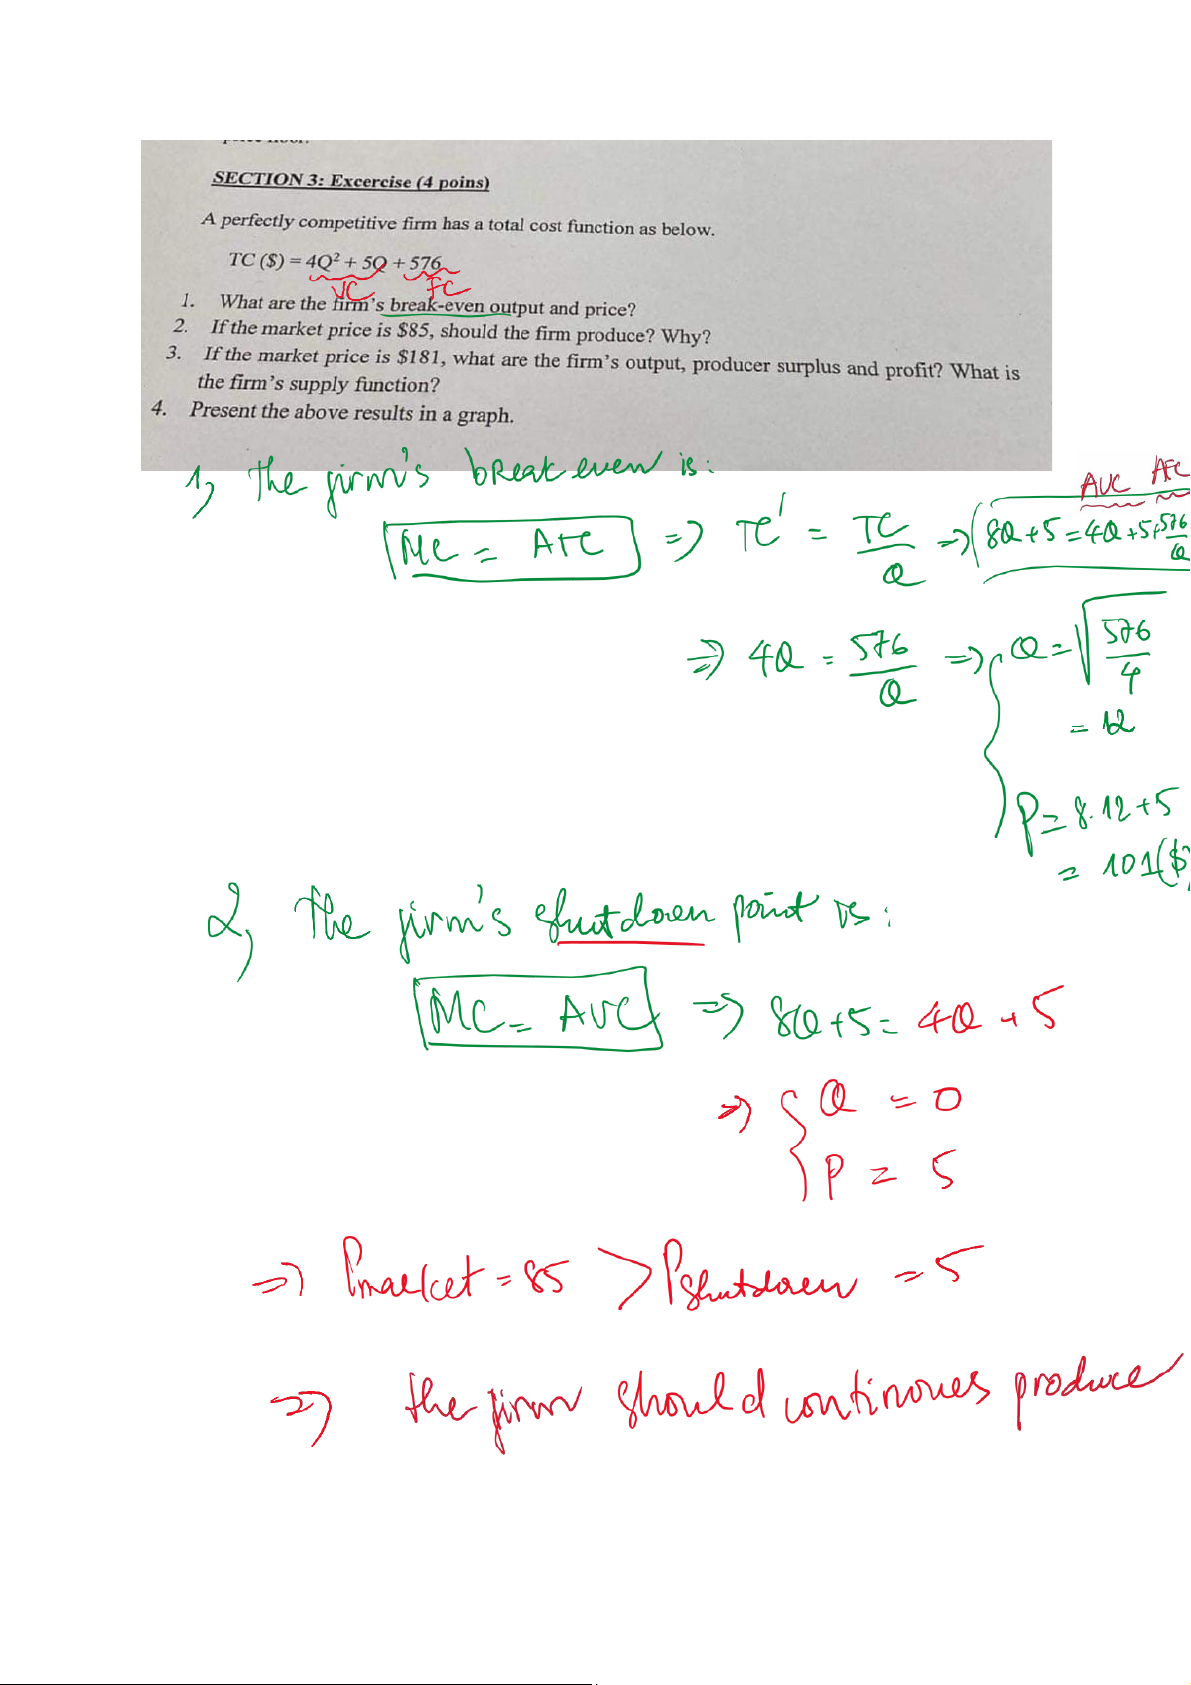 SECTION 3: Excercise (4 poins)
A perfectly competitive firm has a total cost function as below.
TC ($) = 4Q² + 5Q + 576
VC FC
1. What are the firm's break-even output and price?
2. If the market price is $85, should the firm produce? Why?
3. If the market price is $181, what are the firm's output, producer surplus and profit? What is
the firm's supply function?
4. Present the above results in a graph.
1, The firm's break even is:
AVC AFC
MC = ATC => TC' = TC/Q => 8Q+5 = 4Q+5+576/Q
=> 4Q = 576/Q => Q = √576/4
= 12
P = 8.12+5
= 101($)
2, The firm's shutdown point is:
MC = AVC => 8Q+5 = 4Q + 5
=> Q = 0
P = 5
=> Pmarket = 85 > Pshutdown = 5
=> the firm should continoues produce